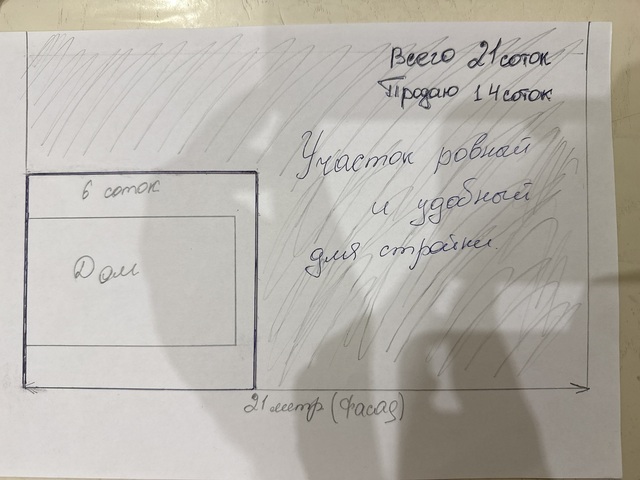 Всего 21 соток
Продаю 14 соток
Участок ровный
и удобный
для стройки.
6 соток
Дом
21 метр (Фасад)